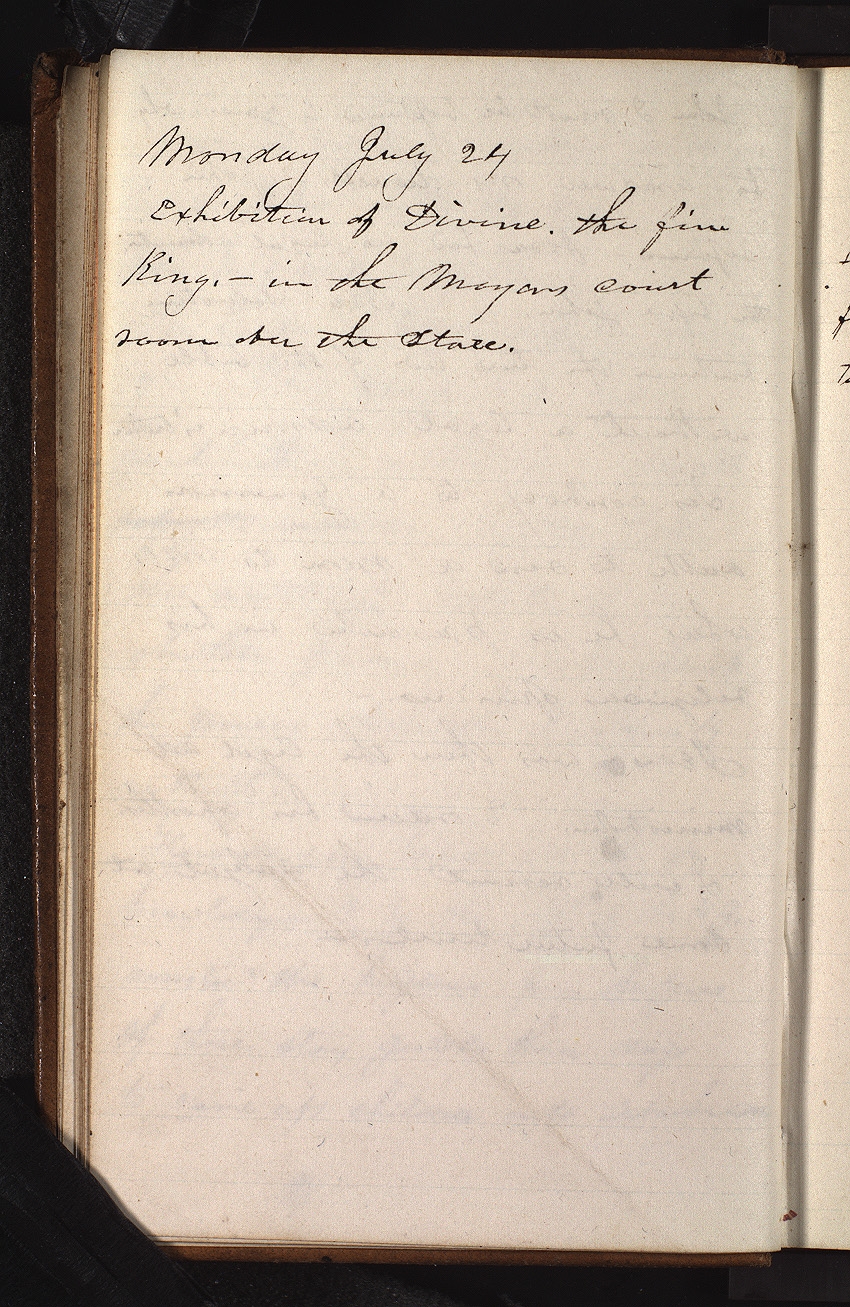 Monday July 24
Exhibition of Divine. the fire
King. – in the Mayors court
room over the Stace.